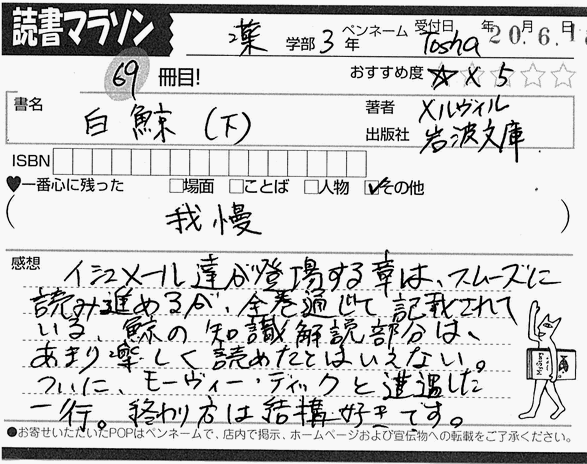 読書マラソン
薬 学部 3 年 ペンネーム Tosha 受付日 20年.6月.1 日
69 冊目! おすすめ度 ☆ × 5 ☆☆☆
書名 白鯨 (下)
著者 メルヴィル
出版社 岩波文庫
ISBN
♥一番心に残った □場面 □ことば □人物 ☑その他
( 我慢 )
感想
イシュメール達が登場する章は、スムーズに
読み進めるが、全巻通じて記載されて
いる、鯨の知識解説部分は、
あまり楽しく読めたとはいえない。
ついに、モーヴィー・ディックと遭遇した
一行。終わり方は結構好きです。
●お寄せいただいたPOPはペンネームで、店内で掲示、ホームページおよび宣伝物への転載をご了承ください。